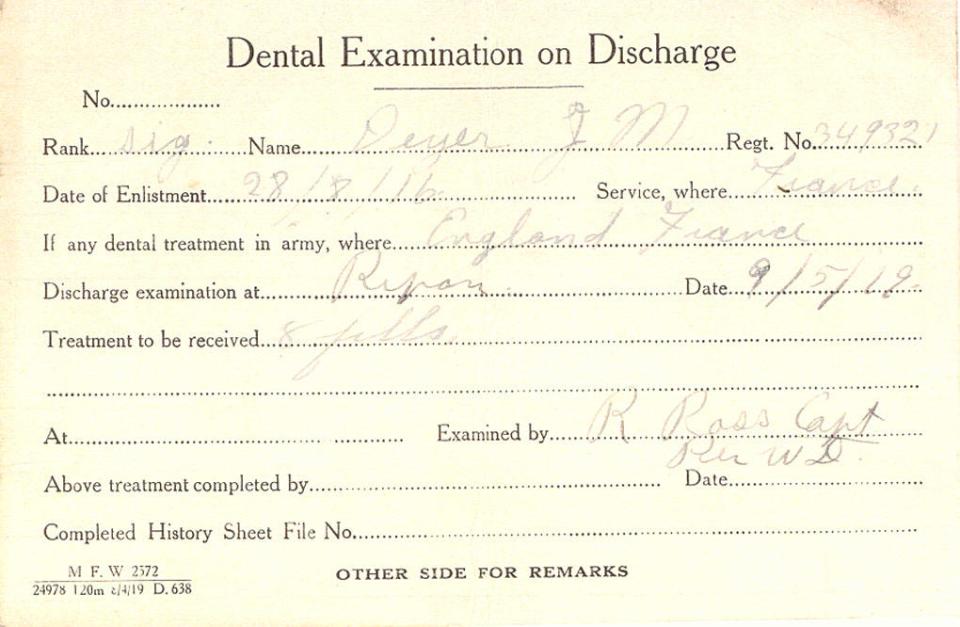 Dental Examination on Discharge
No...................
Rank... Sig. ...Name... Deyer J M ...Regt. No. 349321
Date of Enlistment... 28/8/16 ... Service, where... France.
If any dental treatment in army, where... England France
Discharge examination at... Ripon. ...Date... 9/5/19.
Treatment to be received... 8 fills.
At................ Examined by... R Ross Capt
Per W D.
Above treatment completed by................ Date................
Completed History Sheet File No................
M F. W 2572
OTHER SIDE FOR REMARKS
24978 120m 8/4/19 D. 638